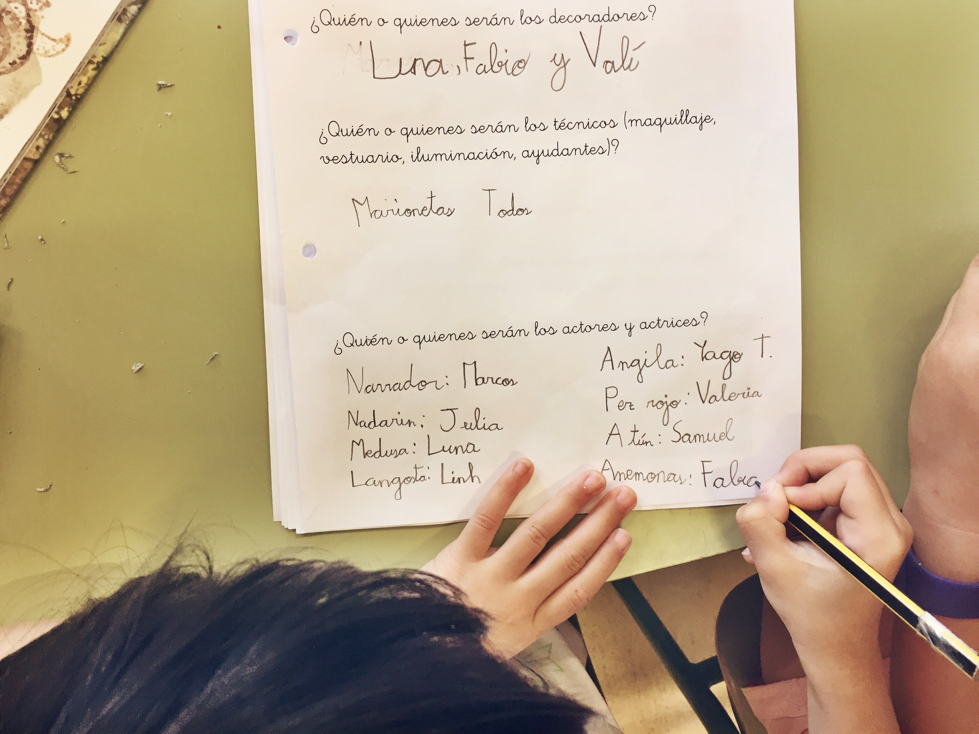 ¿Quién o quienes serán los decoradores?
Luna, Fabio y Valí
¿Quién o quienes serán los técnicos (maquillaje,
vestuario, iluminación, ayudantes)?
Marionetas Todos
¿Quién o quienes serán los actores y actrices?
Narrador: Marcos
Nadarin: Julia
Medusa: Luna
Langosta: Linh
Angila: Yago T.
Pez rojo: Valeria
Atún: Samuel
Anemonas: